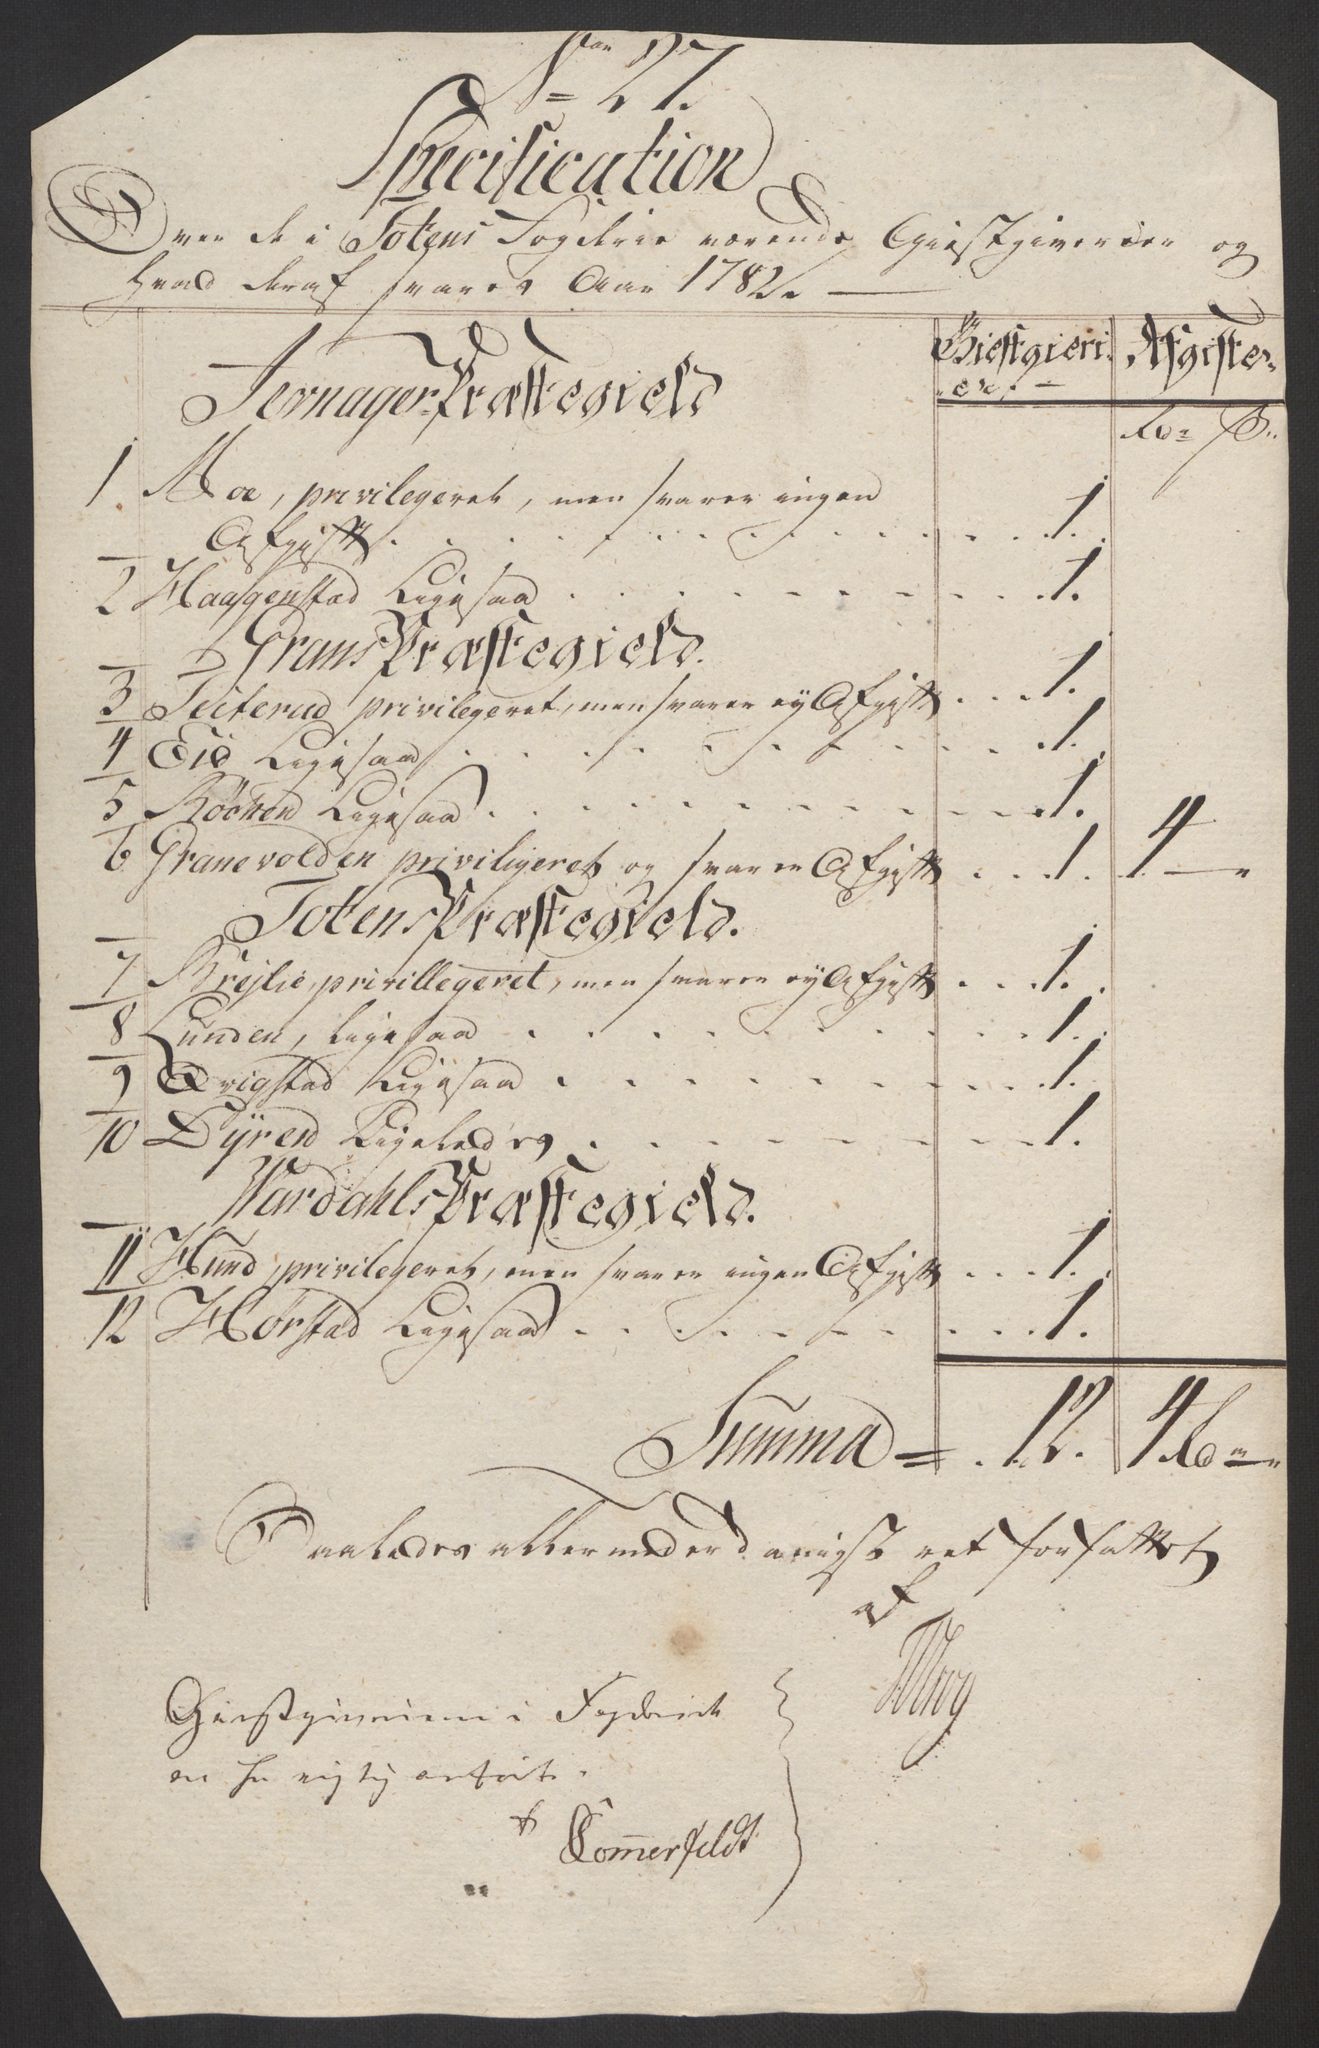 No 27.
Specification
Over de i Totens Fogderie værende Giæstgiverier og
hvad deraf svares Aar 1782.
Giestgieri-
erer
Afgifter
Rdr ß
Jevnager Præstegield
1. Moe, privilegeret, men svarer ingen
Afgift . . . 1.
2 Haagenstad Ligesaa . . . 1.
Grans Præstegield.
3 Teiterud privilegeret, men svarer ey Afgift . . . 1.
4 Eid Ligesaa . . . 1.
5 Röcken Ligesaa . . . 1.
6 Granevolden priviligeret og svarer Afgift . . . 1. 4 —
Totens Præstegield.
7 Brejlie, privillegeret, men svarer ey Afgift . . . 1.
8 Lunden, ligesaa . . . 1.
9 Qvigstad Ligesaa . . . 1.
10 Dÿren Ligeledes . . . 1.
Wardahls Præstegield.
11 Hund, privilegeret, men svarer ingen Afgift . . . 1.
12 Hörstad Ligesaa . . . 1.
Summa = 12. 4 Rd
Saaledes allerunderdanigst ret forfattet
af
Wiwg
Giestgiverierne i Fogderiet
er saa rigtig anført.
Sommerfeldt